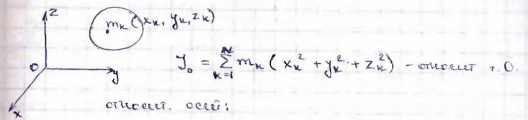 z
m_k (x_k, y_k, z_k)
O
y
x
J_o = \sum_{k=1}^{N} m_k (x_k^2 + y_k^2 + z_k^2) - относит т.О.
относит. осей: